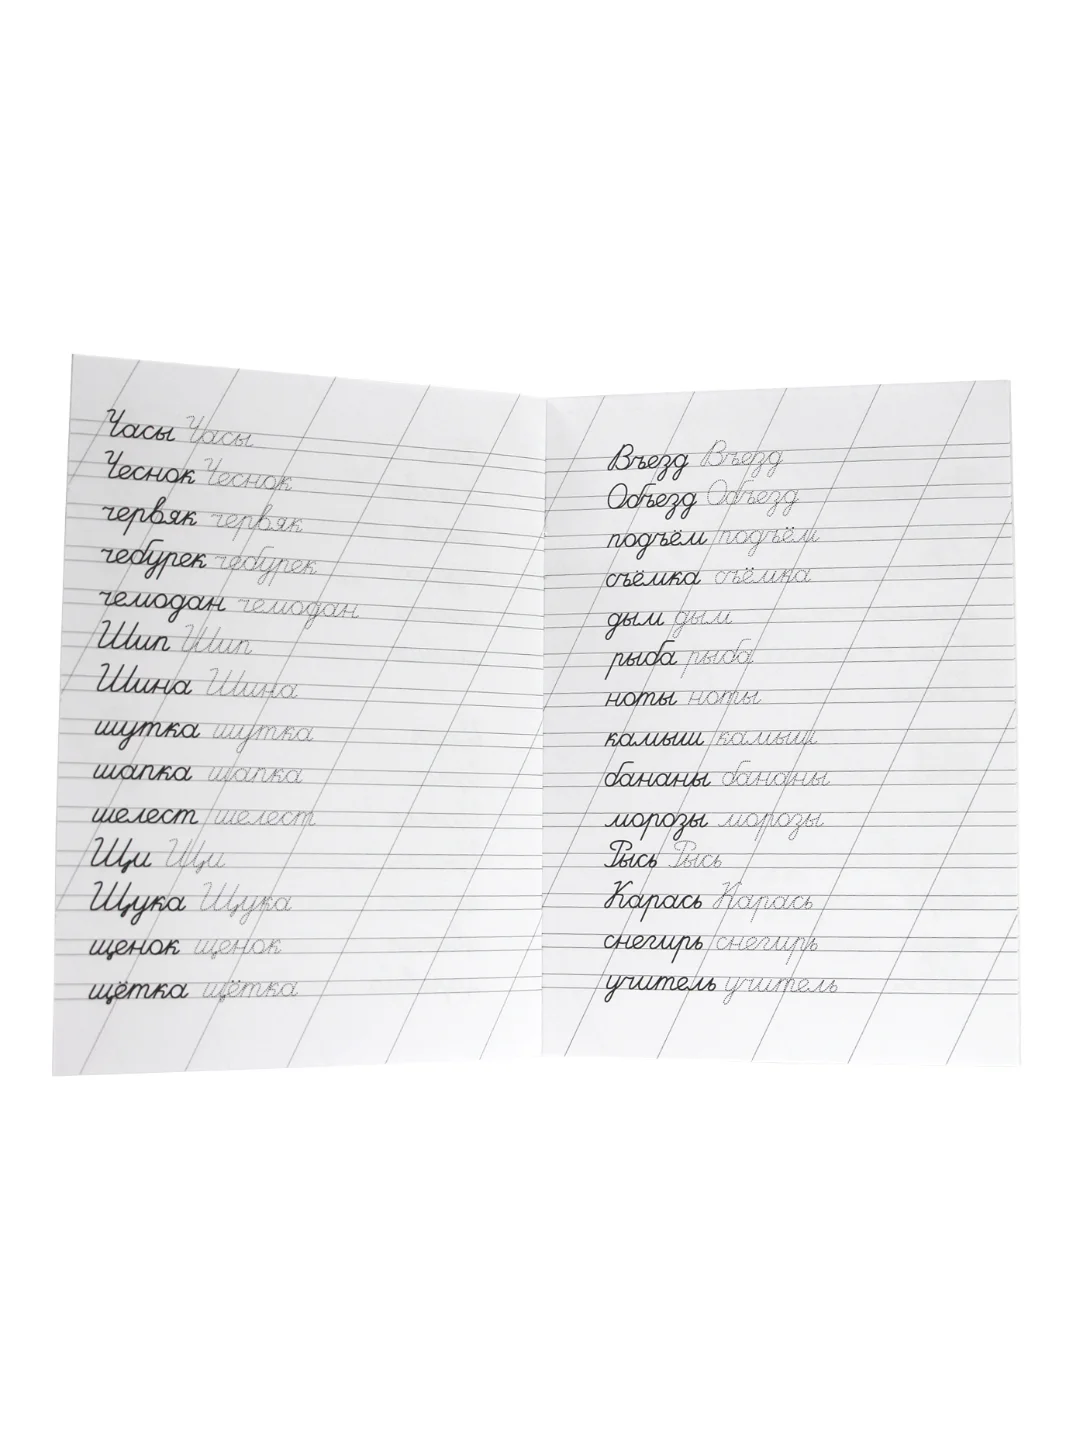 Часы Часы
Чеснок Чеснок
червяк червяк
чебурек чебурек
чемодан чемодан
Шип Шип
Шина Шина
шутка шутка
шапка шапка
шелест шелест
Щи Щи
Щука Щука
щенок щенок
щётка щётка
Въезд Въезд
Объезд Объезд
подъём подъём
съёмка съёмка
дым дым
рыба рыба
ноты ноты
камыш камыш
бананы бананы
морозы морозы
Рысь Рысь
Карась Карась
снегирь снегирь
учитель учитель